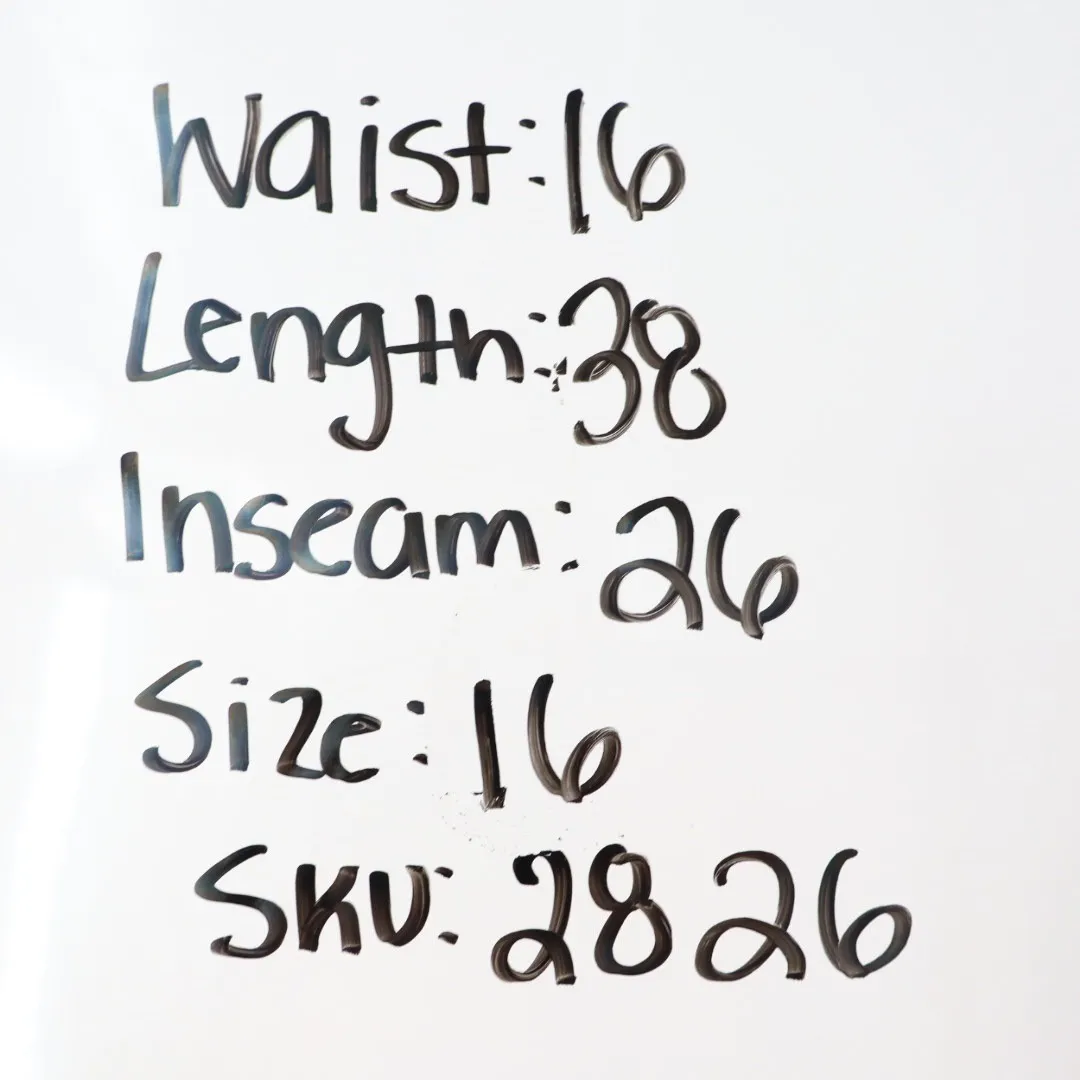 Waist:16
Length:38
Inseam: 26
Size: 16
SKU: 2826